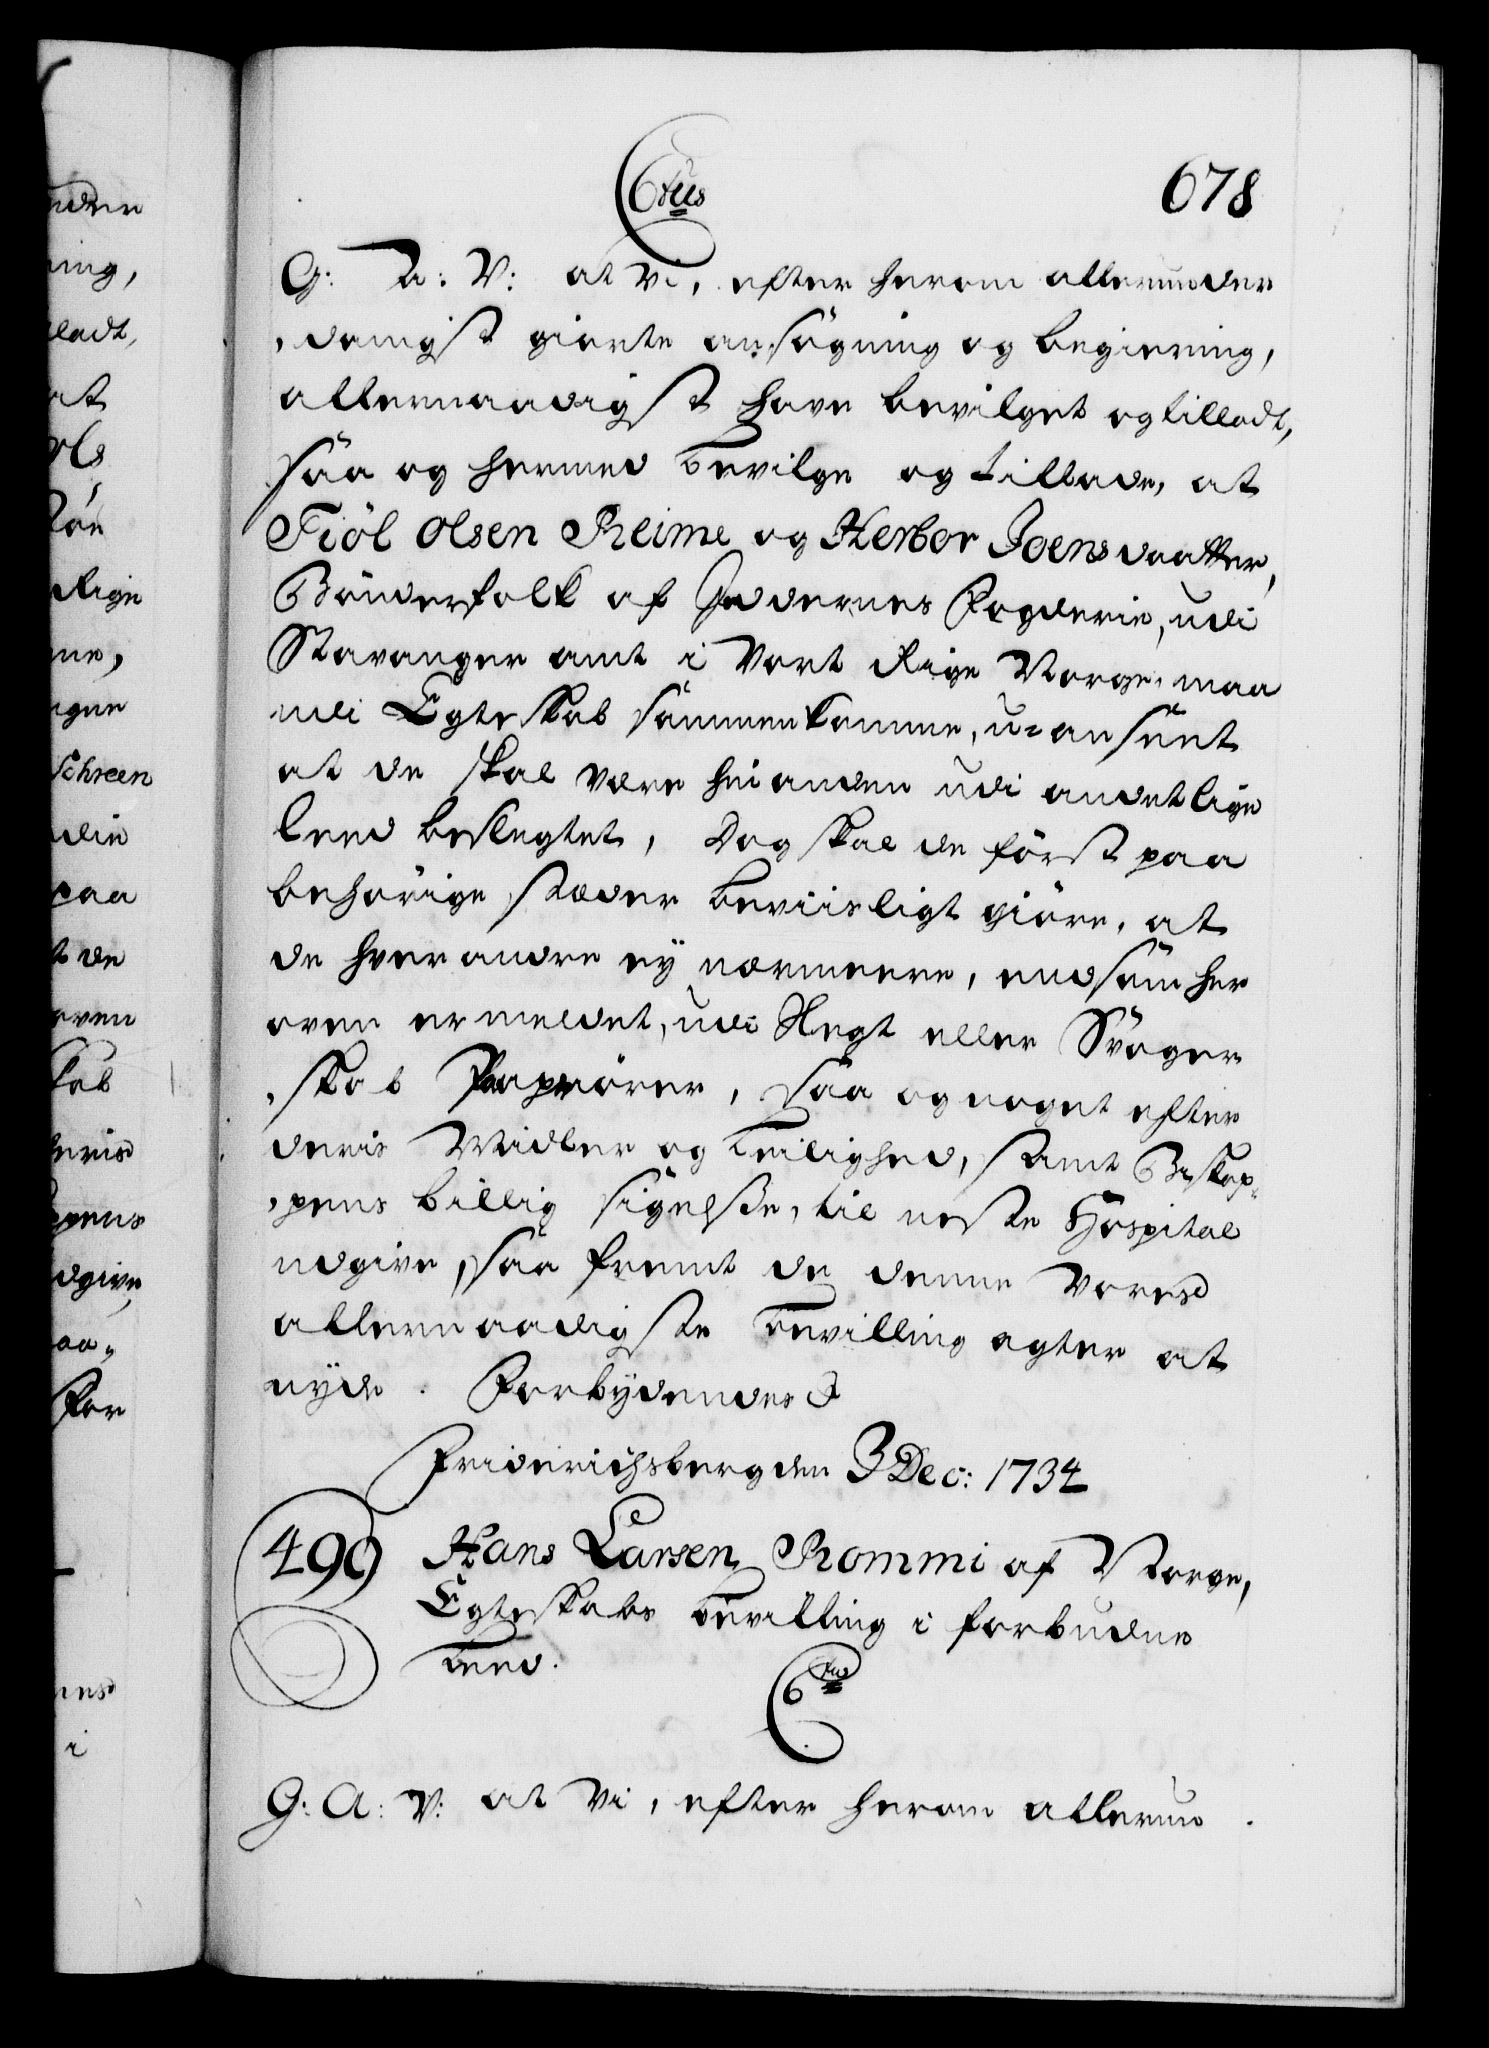 678
C6tus
G: A: V: at Vi, efter herom allerunder
,danigst giorte ansögning og begiering,
allernaadigst have bevilget og tilladt,
saa og hermed bevilge og tillade, at
Fiöl Olsen Reime og Herbor Joensdaatter,
Bönderfolk af Jedderens Fogderie, udi
Stavanger amt i Vort Rige Norge, maa
udi Egteskab sammenkomme, u-anseet
at de skal være hin anden udi andet lige
leed beslegtet, Dog skal de först paa
behörige stæder beviisligt giöre, at
de hverandre ey nærmere, end som her
oven er meldet, udi Slegt eller Svoger
,skab paarörer, saa og noget efter
deris Midler og leilighed, samt Biskop-
,pens billig sigelse, til neste Hospital
udgive, saa fremt de denne Vores
allernaadigste bevilling agter at
nyde. Forbydendes
Friderichsberg den 3 Dec: 1734
490 Hans Larsen Rommi af Norge,
Egteskabs bevilling i forbudne
Leed.
C6tus
G: A: V: at Vi, efter herom allerun